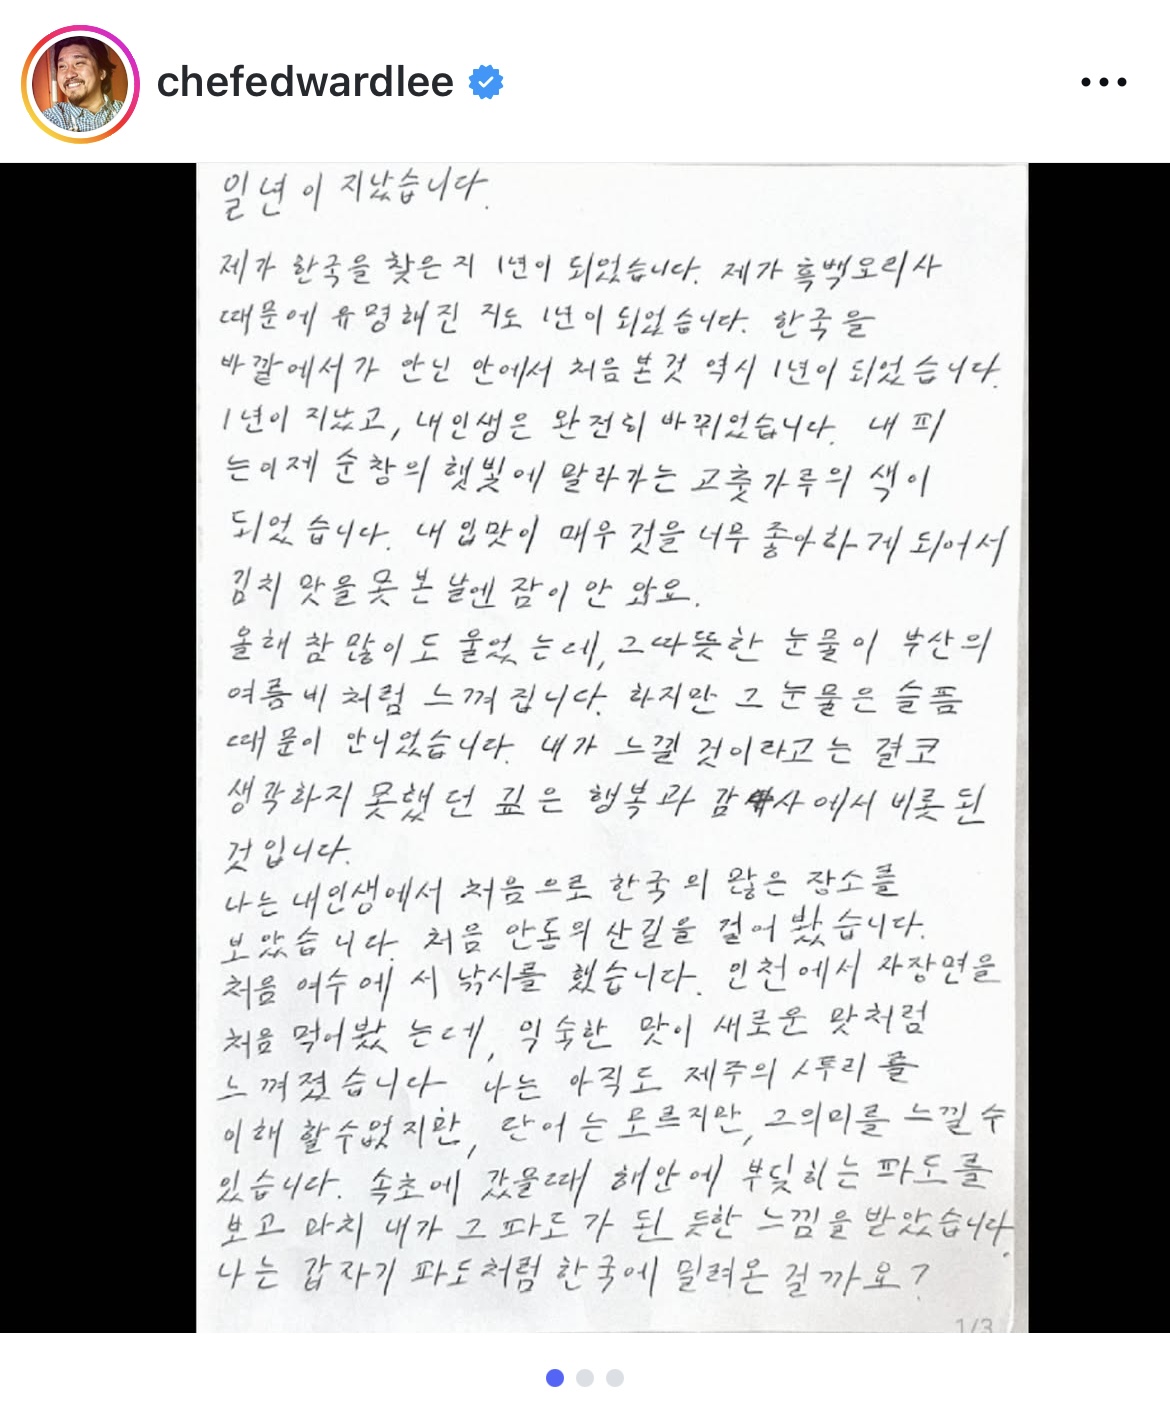 chefedwardlee
일년이 지났습니다.
제가 한국을 찾은 지 1년이 되었습니다. 제가 흑백오리사
때문에 유명해진 지도 1년이 되었습니다. 한국을
바깥에서가 안닌 안에서 처음 본것 역시 1년이 되었습니다.
1년이 지났고, 내인생은 완전히 바뀌었습니다. 내 피
는이제 순창의 햇빛에 말라가는 고춧가루의 색이
되었습니다. 내 입맛이 매우 것을 너무 좋아하게 되어서
김치 맛을 못 본 날엔 잠이 안 와요.
올해 참 많이도 울었는데, 그따뜻한 눈물이 부산의
여름비처럼 느껴집니다. 하지만 그 눈물은 슬픔
때문이 안니었습니다. 내가 느낄 것이라고는 결코
생각하지 못했던 깊은 행복과 감사에서 비롯된
것입니다.
나는 내인생에서 처음으로 한국의 많은 장소를
보았습니다. 처음 안동의 산길을 걸어 봤습니다.
처음 여수에서 낚시를 했습니다. 인천에서 자장면을
처음 먹어봤는데, 익숙한 맛이 새로운 맛처럼
느껴졌습니다 나는 아직도 제주의 사투리를
이해 할수없지만, 단어는 모르지만, 그의미를 느낄 수
있습니다. 속초에 갔을때 해안에 부딪히는 파도를
보고 마치 내가 그 파도가 된 듯한 느낌을 받았습니다.
나는 갑자기 파도처럼 한국에 밀려온 걸까요?
1/3